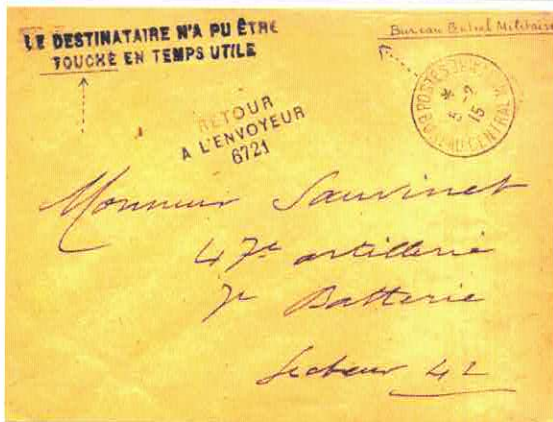 LE DESTINATAIRE N'A PU ÊTRE
TOUCHÉ EN TEMPS UTILE
Bureau Central Militaire
POSTES
BUREAU CENTRAL
15
RETOUR
A L'ENVOYEUR
6721
Monsieur Sauvinet
47e artillerie
7e Batterie
Secteur 42